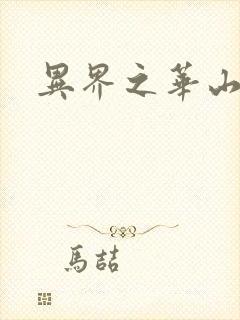 異界之華山
馬喆